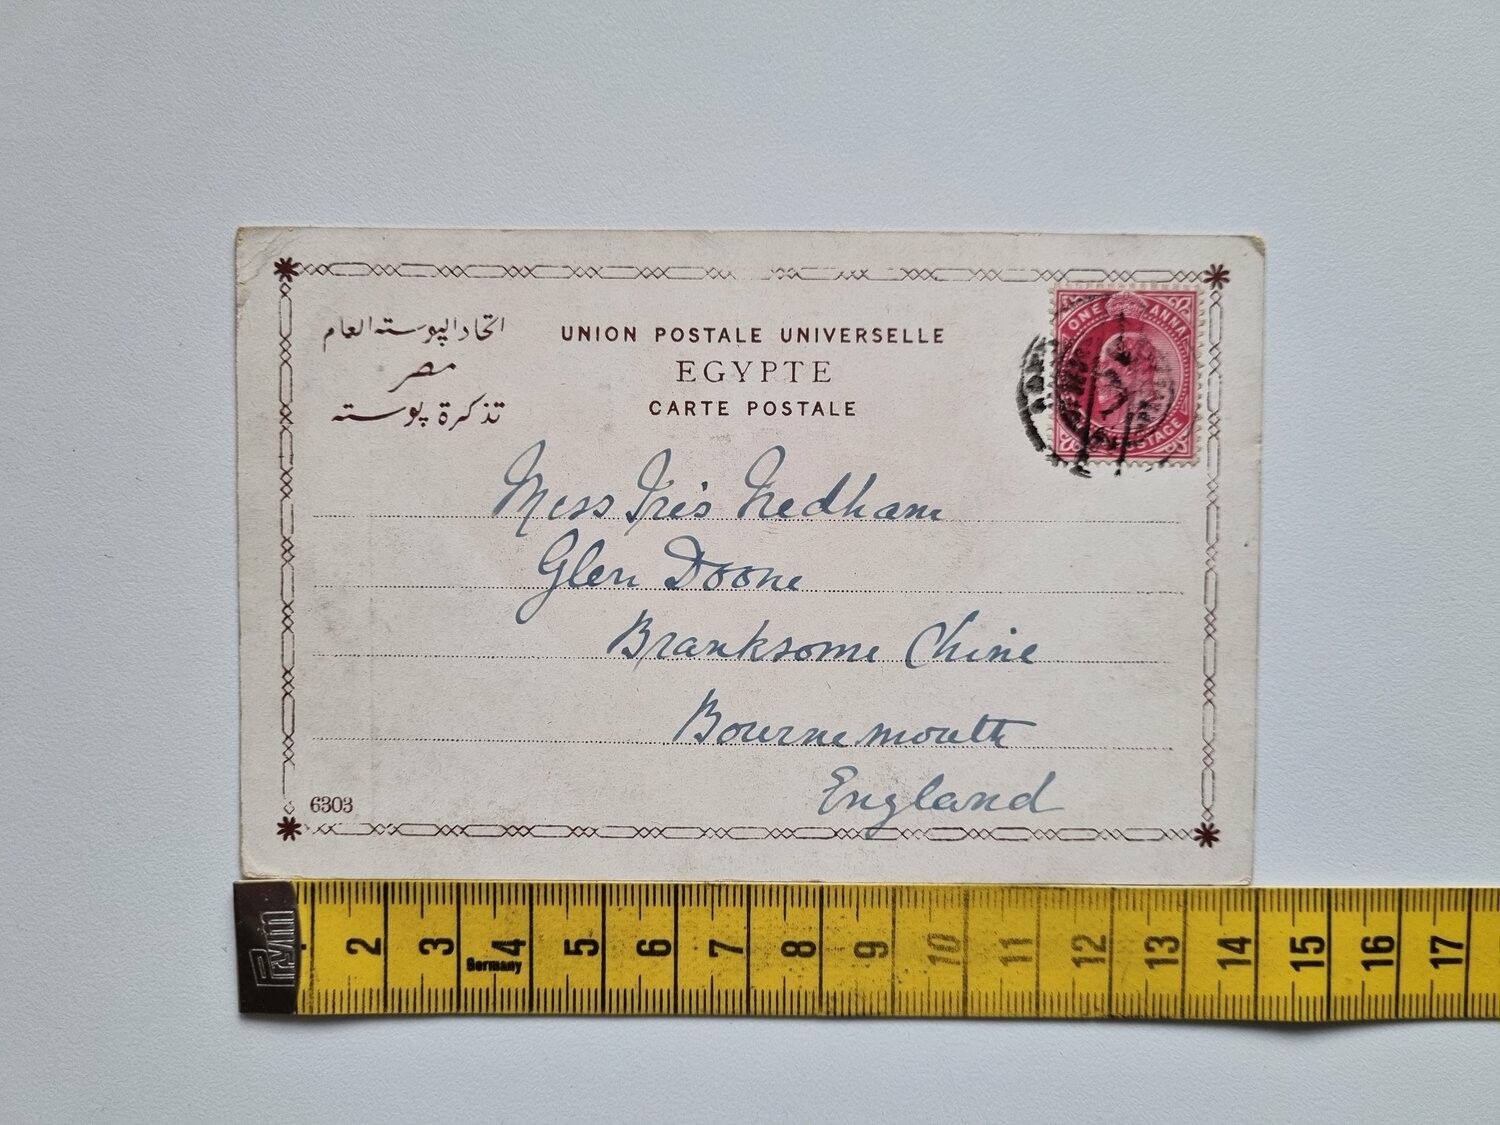 اتحاد البوسته العام
مصر
تذكرة بوسته
UNION POSTALE UNIVERSELLE
EGYPTE
CARTE POSTALE
ONE ANNA
POSTAGE
Miss Iris Nedham
Glen Doone
Branksome Chine
Bournemouth
England
6303
Prym
2 3 4 5 6 7 8 9 10 11 12 13 14 15 16 17
Germany